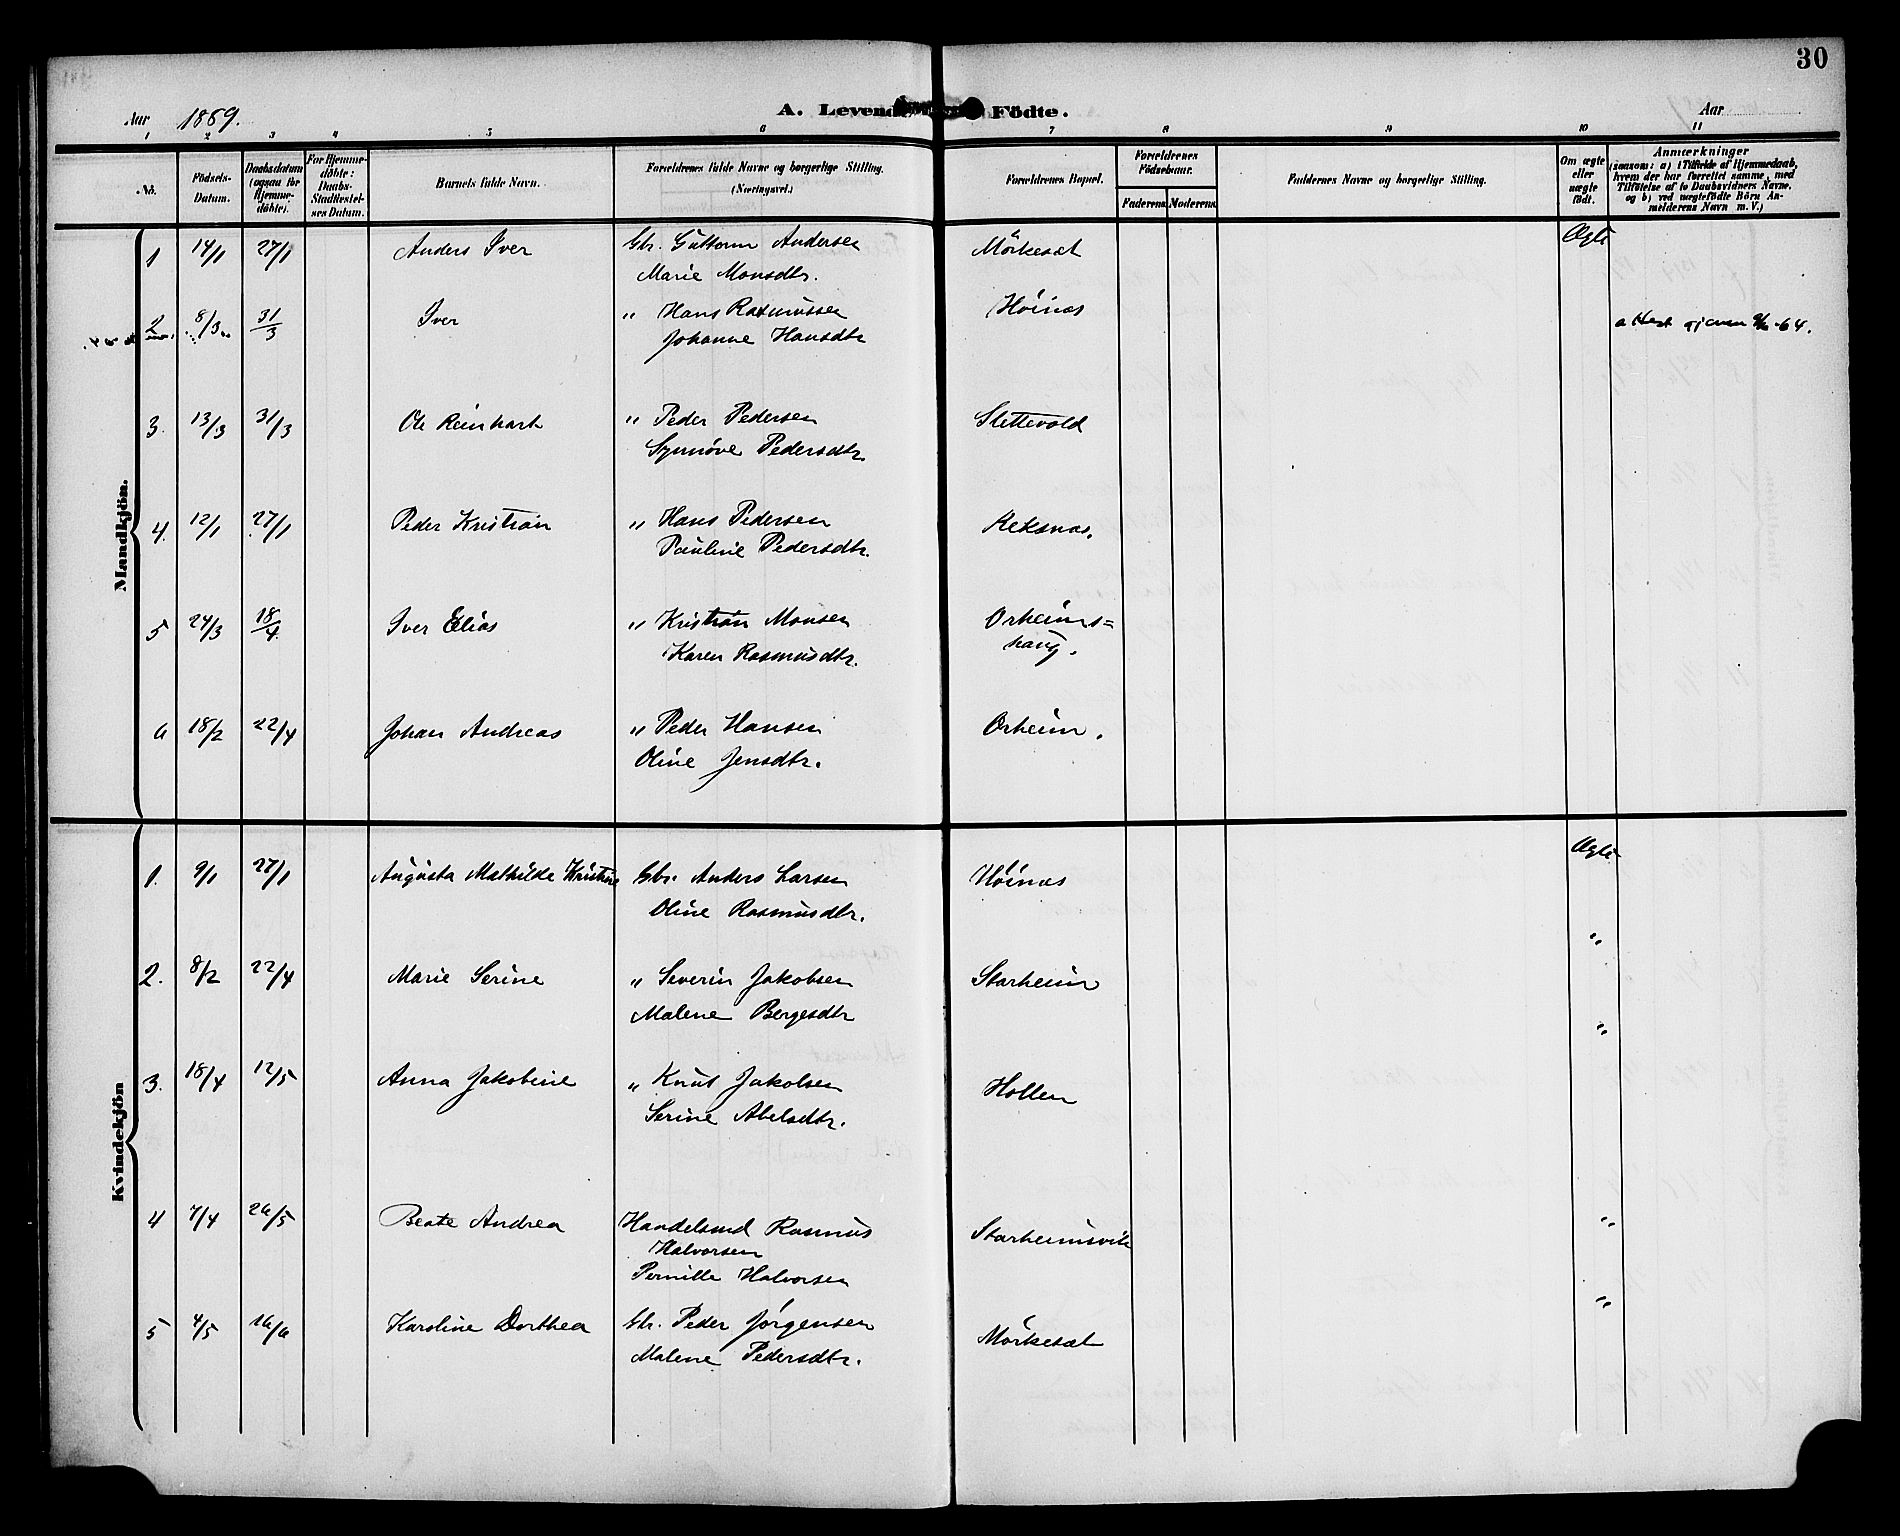 30
Aar 1889. A. Levende Födte. Aar
1 2 3 4 5 6 7 8 9 10 11
No. Födsels-Datum. Daabsdatum (ogsaa for Hjemme-döbte). For Hjemme-döbte: Daabs-Stadfæstel-ses Datum. Barnets fulde Navn. Forældrenes fulde Navne og borgerlige Stilling. (Næringsvei.) Forældrenes Bopæl. Forældrenes Födselsaar. Faderens Moderens Faddernes Navne og borgerlige Stilling. Om ægte eller uægte födt. Anmærkninger (saasom: a) i Tilfælde af Hjemmedaab, hvem der har forrettet samme, med Tilföielse af to Daabsvidners Navne, og b) ved uægtefödte Börn Anmelderens Navn m. V.)
Mandkjön.
1 14/1 27/1 Anders Iver Gbr. Guttorm Andersen Mörkesæt Ægte
Marie Monsdtr.
2 8/3 31/3 Iver " Hans Rasmussen Höinæs attest -64.
Johanne Hansdtr
3. 13/3 31/3 Ole Reinhart " Peder Pedersen Slettevold
Synnöve Pedersdtr.
4. 12/1 27/1 Peder Kristian " Hans Pedersen Reksnæs.
Pauline Pedersdtr.
5 24/3 18/4 Iver Elias " Kristian Monsen Orheims=
Karen Rasmusdtr. haug.
6 18/2 22/4 Johan Andreas " Peder Hansen Orheim.
Oline Jensdtr.
Kvindekjön
1. 9/1 27/1 Augusta Mathilde Kristine Gbr. Anders Larsen Höinæs Ægte
Oline Rasmusdtr.
2. 8/2 22/4 Marie Serine " Severin Jakobsen Starheim "
Malene Bergesdtr
3. 18/4 12/5 Anna Jakobine " Knut Jakobsen Hollen "
Serine Abelsdtr.
4 7/4 26/5 Beate Andrea Handelsmd Rasmus Starheimsvik "
Halvorsen
Pernille Halvorsen
5 4/5 16/6 Karoline Dorthea Gbr. Peder Jörgensen Mörkesæt "
Malene Pedersdtr.